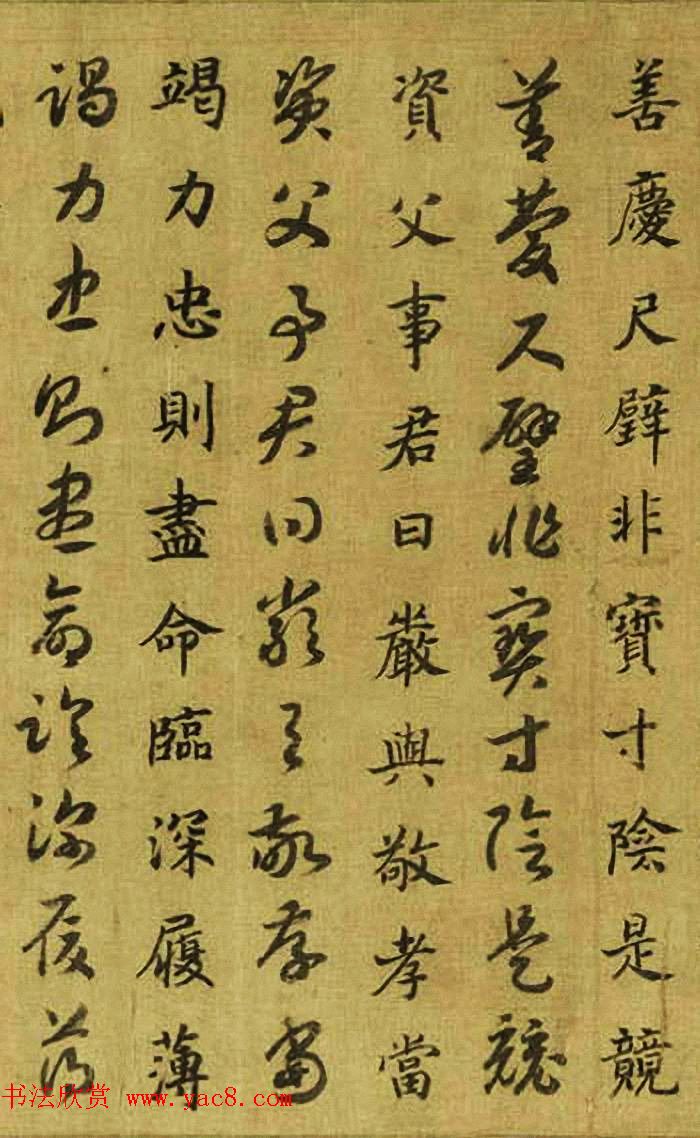 善慶尺璧非寶寸陰是競
善慶尺璧非寶寸陰是競
資父事君曰嚴與敬孝當
資父事君曰嚴与敬孝當
竭力忠則盡命臨深履薄
竭力忠則盡命臨深履薄
书法欣赏 www.yac8.com